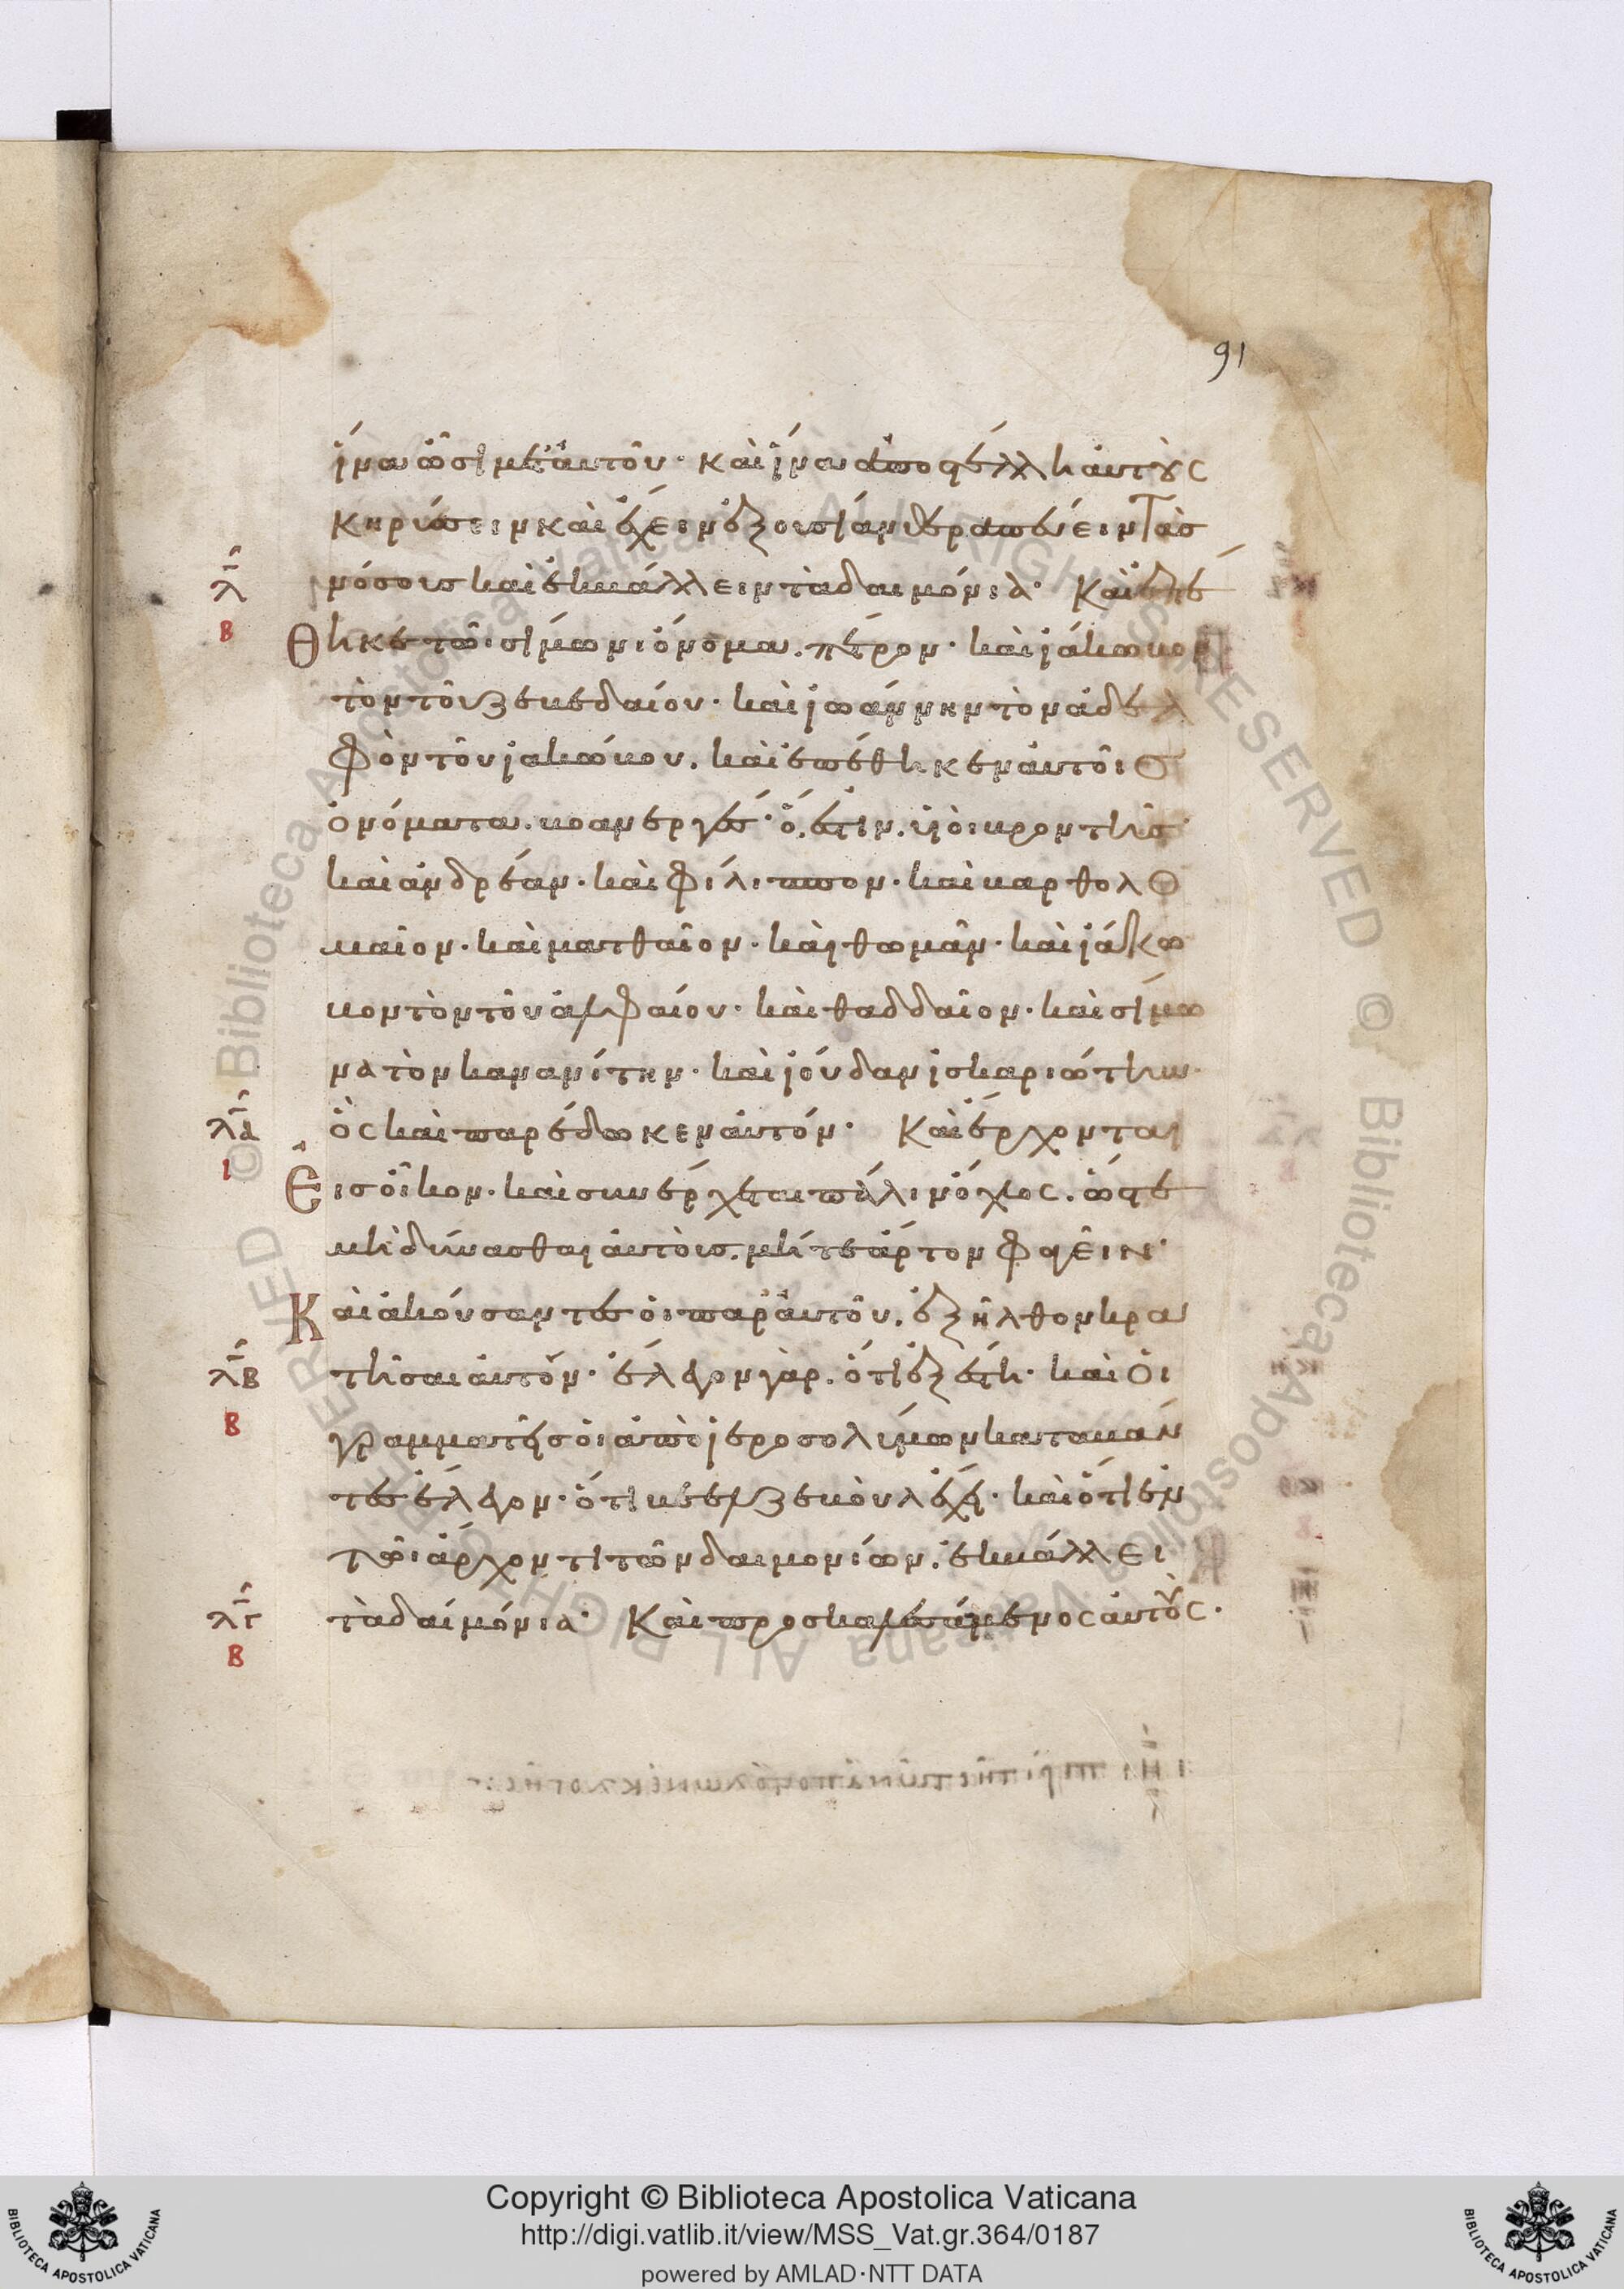 91
ἵνα ὦσι μετ' αὐτοῦ· καὶ ἵνα ἀποστέλλη αὐτοὺς
κηρύσσειν καὶ ἔχειν ἐξουσίαν θεραπεύειν τὰσ
νόσους καὶ ἐκβάλλειν τὰ δαιμόνια· Καὶ ἐπέ
λ
β
θηκε τῶι σίμωνι ὄνομα. πέτρον· καὶ ἰάκωβον
τὸν τοῦ ζεβεδαίου· καὶ ἰωάννην τὸν ἀδελ
φὸν τοῦ ἰακώβου. καὶ ἐπέθηκεν αὐτοῖσ
ὀνόματα. βοανεργές· ὅ ἐστιν. υἱοὶ βροντῆς·
καὶ ἀνδρέαν· καὶ φίλιππον· καὶ βαρθολο
μαῖον· καὶ ματθαῖον· καὶ θωμᾶν· καὶ ἰάκω
βον τὸν τοῦ ἀλφαίου· καὶ θαδδαῖον· καὶ σίμω
να τὸν κανανίτην· καὶ ἰούδαν ἰσκαριώτην·
λα
ι
ὃς καὶ παρέδωκεν αὐτόν· Καὶ ἔρχονται
εἰσ οἶκον· καὶ συνέρχεται πάλιν ὄχλος. ὥστε
μὴ δύνασθαι αὐτοὺς. μήτε ἄρτον φαγεῖν·
Καὶ ἀκούσαντες οἱ παρ' αὐτοῦ. ἐξῆλθον κρα
λβ
β
τῆσαι αὐτόν· ἔλεγον γὰρ. ὅτι ἐξέστη· καὶ οἱ
γραμματεῖς οἱ ἀπὸ ἱεροσολύμων καταβάν
τες ἔλεγον· ὅτι βεελζεβοὺλ ἔχει· καὶ ὅτι ἐν
τῶι ἄρχοντι τῶν δαιμονίων. ἐκβάλλει
λγ
β
τὰ δαίμόνια· Καὶ προσκαλεσάμενος αὐτοὺς.
Copyright © Biblioteca Apostolica Vaticana
http://digi.vatlib.it/view/MSS_Vat.gr.364/0187
powered by AMLAD·NTT DATA
BIBLIOTECA APOSTOLICA VATICANA
BIBLIOTECA APOSTOLICA VATICANA
© Biblioteca Apostolica Vaticana ALL RIGHTS RESERVED
© Biblioteca Apostolica Vaticana ALL RIGHTS RESERVED